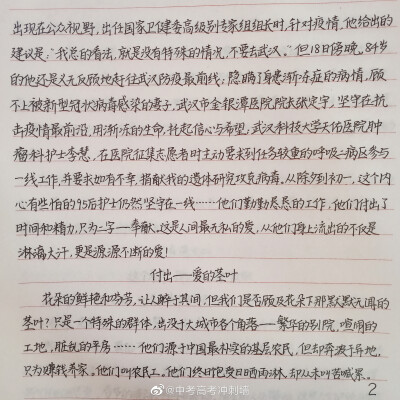 出现在公众视野,出任国家卫健委高级别专家组组长时,针对疫情,他给出的
建议是:"我总的看法,就是没有特殊的情况,不要去武汉。"但18日傍晚,84岁
的他还是义无反顾地赶往武汉防疫最前线;隐瞒了身患渐冻症的病情,顾
不上被新型冠状病毒感染的妻子,武汉市金银潭医院院长张定宇,坚守在抗
击疫情最前沿,用渐冻的生命,托起信心与希望,武汉科技大学天佑医院肿
瘤科护士李慧,在医院征集志愿者时主动要求到任务较重的呼吸二病区参与
一线工作,并要求如有不幸,捐献我的遗体研究攻克病毒。从除夕到初一,这个内
心有些怕的95后护士仍然坚守在一线……他们勤勤恳恳的工作,他们付出了
时间和精力,只为二字——奉献,这是人间最无私的爱,从他们身上流出的不仅是
淋漓大汗,更是源源不断的爱!
付出——爱的茎叶
花朵的鲜艳和芬芳,让人醉于其间,但我们是否顾及花朵下那默默无闻的
茎叶?只是一个特殊的群体,出没于大城市各个角落——繁华的别院,喧闹的
工地,脏乱的平房……他们源于中国最朴实的基层农民,但却奔波于异地,
只为赚钱养家。他们叫农民工。他们终日饱受日晒雨淋,却从未叫苦喊累。
2
@中考高考冲刺墙